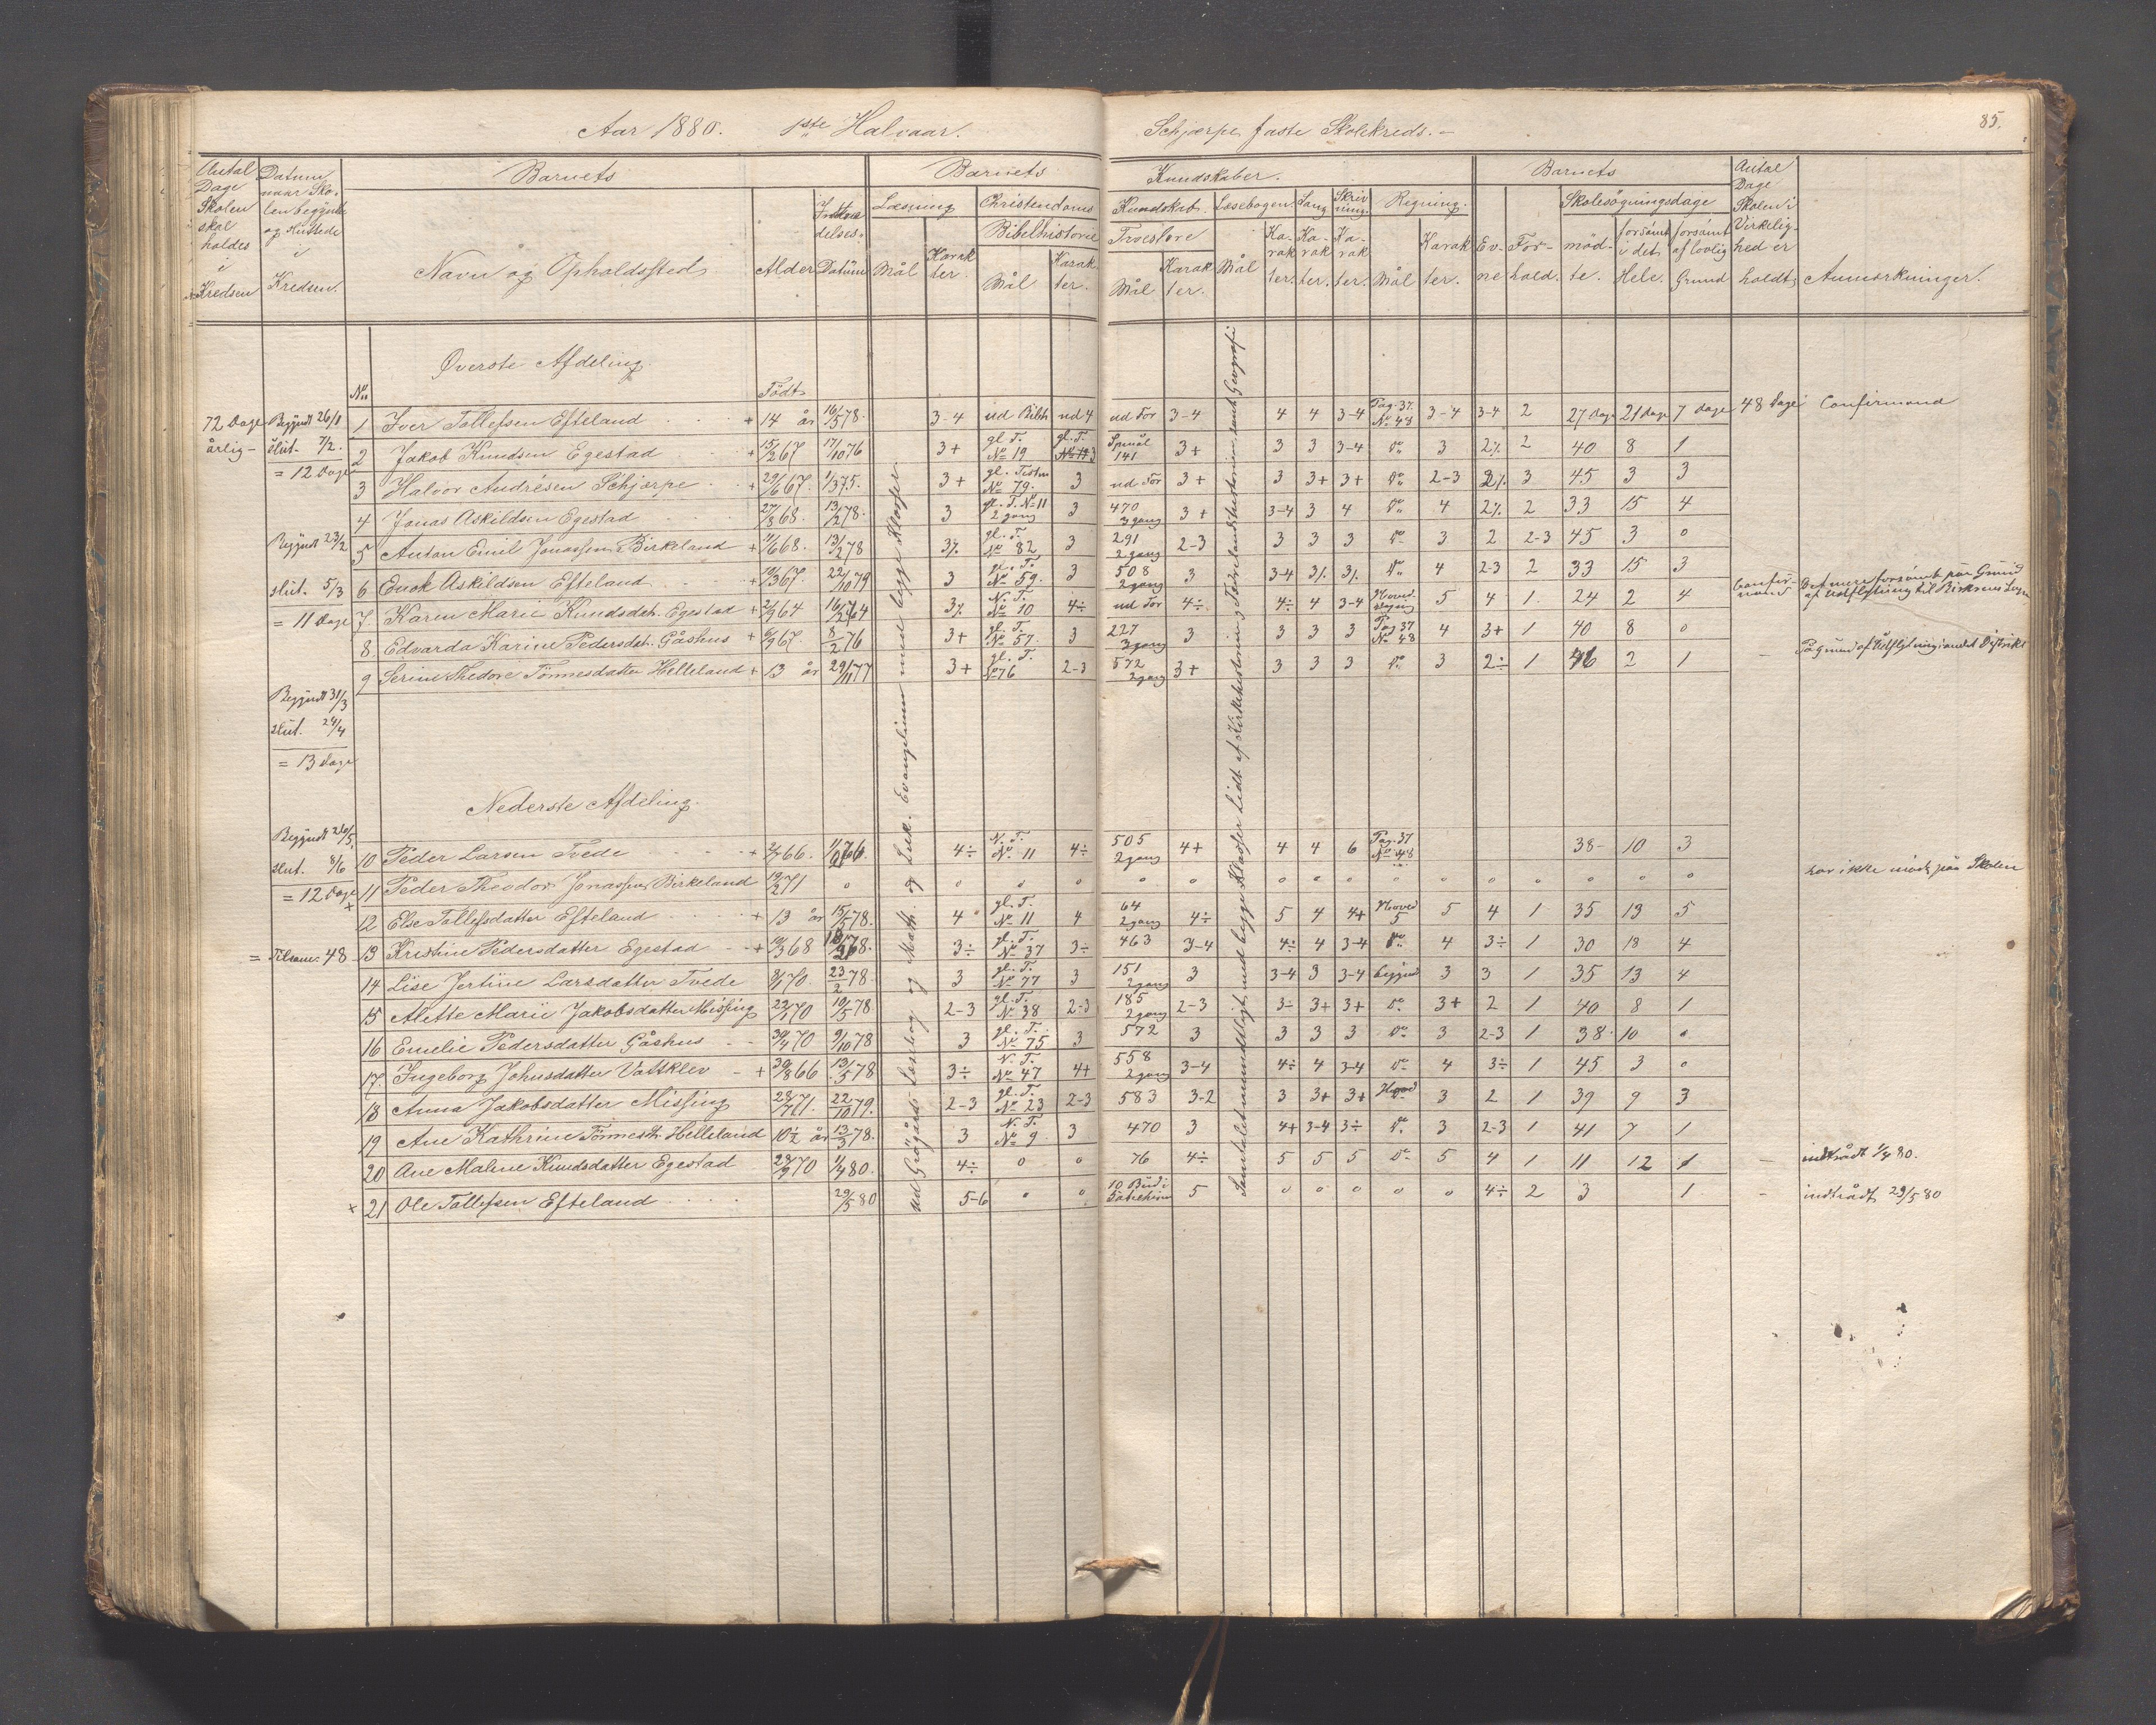 Aar 1880. 1ste Halvaar. Schjærpe faste Skolekreds. 85.
Antal Dage Skolen skal holdes i Kredsen
Datum naar Skolen begyndte og sluttede i Kredsen.
Barnets
Navn og Opholdssted
Alder
Indtrædelses-Datum
Barnets Kundskaber.
Læsning
Mål
Karakter.
Christendoms Kundskab.
Bibelhistorie
Mål
Karakter.
Troeslære
Mål
Karakter.
Læsebogen.
Mål
Karakter.
Sang
Karakter.
Skrivning.
Karakter.
Regning.
Mål
Karakter.
Barnets
Evne
Forhold.
Skolesøgningsdage
mødte.
forsömt i det Hele.
forsömt af lovlig Grund
Antal Dage Skolen i Virkelighed er holdt
Anmærkninger.
Øverste Afdeling.
No Födt
72 Dage årlig
Begyndt 26/1
slut. 7/2.
= 12 Dage
Begyndt 23/2
slut. 5/3
= 11 Dage
Begyndt 31/3
slut. 24/4
= 13 Dage
Begyndt 26/5
slut. 8/6
= 12 Dage
= Tilsam. 48
ud Grågårds Læsebog og Math. og Luk. Evangelium med begge Klasser
Samtalet mundtligt med begge Klasser lidt af Kirkehistorien, Fædrelandshistorien samt Geografi
1 Iver Tollefsen Efteland + 14 år 16/5 78. 3-4 ud Bibh ud 4 ud For 3-4 4 4 3-4 Pag. 37. No 48 3-4 3-4 2 27 dage 21 dage 7 dage 48 Dage Confirmand
2 Jakob Knudsen Egestad + 15/2 67 17/10 76 3+ gl. T. No 19 gl. T. 3 Spmål 141 3+ 3 3 3-4 Do 3 2% 2 40 8 1
3 Halvor Andrésen Schjærpe + 29/6 67. 1/3 75. 3+ gl. Testm No 79. 3 ud For 3+ 3 3+ 3+ Do 2-3 2% 3 45 3 3
4 Jonas Askildsen Egestad 27/8 68. 13/2 78. 3 gl. T. No 11 2 gang 3 470 3 gang 3+ 3-4 3 4 Do 4 2% 2 33 15 4
5 Anton Emil Jonassen Birkeland + 11/6 68. 13/2 78 3% gl. T. No 82 3 291 2 gang 2-3 3 3 3 Do 3 2 2-3 45 3 0
6 Enok Askildsen Efteland + 19/3 67. 22/10 79 3 gl. T. No 59. 3 508 2 gang 3 3-4 3% 3% Do 4 2-3 2 33 15 3
7. Karen Marie Knudsdatt. Egestad + 2/9 64 3% N. T. No 10 4÷ ud For 4÷ 4÷ 4 3-4 Hoved regning 5 4 1 24 2 4 Confirmand
8. Edvarda Karine Pedersdatt. Gåshus + 6/9 67. 8/2 76 3+ gl. T. No 57. 3 227 3 gang 3 3 3 3 Pag 37 No 48 4 3+ 1 40 8 0
9 Serine Thedore Tönnesdatter Helleland + 13 år 29/11 77 3+ gl. T. No 76 2-3 572 2 gang 3+ 3 3 3 Do 3 2÷ 1 46 2 1 På Grund af Udflytning i andet Distrikt
Nederste Afdeling.
10 Peder Larsen Tvede + 2/7 66. 4÷ N. T. No 11 4÷ 505 2 gang 4+ 4 4 6 Pag. 37 No 48 38 10 3
11 Peder Theodor Jonassen Birkeland 19/2 71 0 0 0 0 0 0 0 0 0 0 0 0 0 0 0 0 har ikke mödt på Skolen
12 Else Tollefsdatter Efteland + 13 år 15/5 78. 4 gl. T. No 11 4 64 2 gang 4÷ 5 4 4+ Hoved 5 5 4 1 35 13 5
13 Kristine Pedersdatter Egestad + 19/3 68 3÷ gl. T. No 37 3÷ 463 3-4 4÷ 4 3-4 Do 4 3÷ 1 30 18 4
14 Lise Jertine Larsdatter Tvede 8/1 70. 23/2 78. 3 gl. T. No 77 3 151 2 gang 3 3-4 3 3-4 begynd 3 3 1 35 13 4
15 Alette Marie Jakobsdatter Missing 22/1 70 10/5 78 2-3 gl. T. No 38 2-3 185 2 gang 2-3 3÷ 3+ 3+ Do 3+ 2 1 40 8 1
16 Emelie Pedersdatter Gåshus 30/4 70 9/10 78 3 gl. T. No 75 3 572 3 3 3 3 Do 3 2-3 1 38 10 0
17. Ingeborg Johnsdatter Vattklev + 30/8 66 13/5 78 3÷ N. T. No 47 4+ 558 2 gang 3-4 4÷ 4 3-4 Do 4 3÷ 1 45 3 0
18 Anna Jakobsdatter Missing 28/7 71. 22/10 79. 2-3 gl. T. No 23 2-3 583 3-2 3 3+ 3+ Hoved 3 2 1 39 9 3
19 Ane Kathrine Tönnesdt. Helleland 10½ år 13/3 78. 3 N. T. No 9 3 470 3 4+ 3-4 3÷ Do 3 2-3 1 41 7 1
20 Ane Malene Knudsdatter Egestad 28/9 70 1/4 80. 4÷ 0 0 76 4÷ 5 5 5 Do 5 4 1 11 12 1 indtrådt 1/4 80.
21 Ole Tollefsen Efteland 29/5 80 5-6 0 0 10 Bud 5 0 0 0 0 0 4÷ 2 3 1 indtrådt 29/5 80